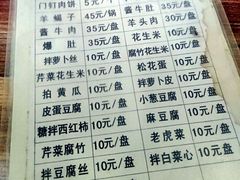 门钉肉饼 5元/个 酱牛肉 35元/盘
羊蝎子 45元/锅 羊头肉 30元/盘
酱牛肚 35元/盘 花生米 10元/盘
爆肚 35元/盘 腐竹花生米 10元/盘
拌萝卜丝 10元/盘 松花蛋 10元/盘
芹菜花生米 10元/盘 拌萝卜皮 10元/盘
拍黄瓜 10元/盘 小葱豆腐 10元/盘
皮蛋豆腐 10元/盘 麻豆腐 10元/盘
糖拌西红柿 10元/盘 老虎菜 10元/盘
芹菜腐竹 10元/盘 拌白菜心 10元/盘
拌豆腐丝 10元/盘